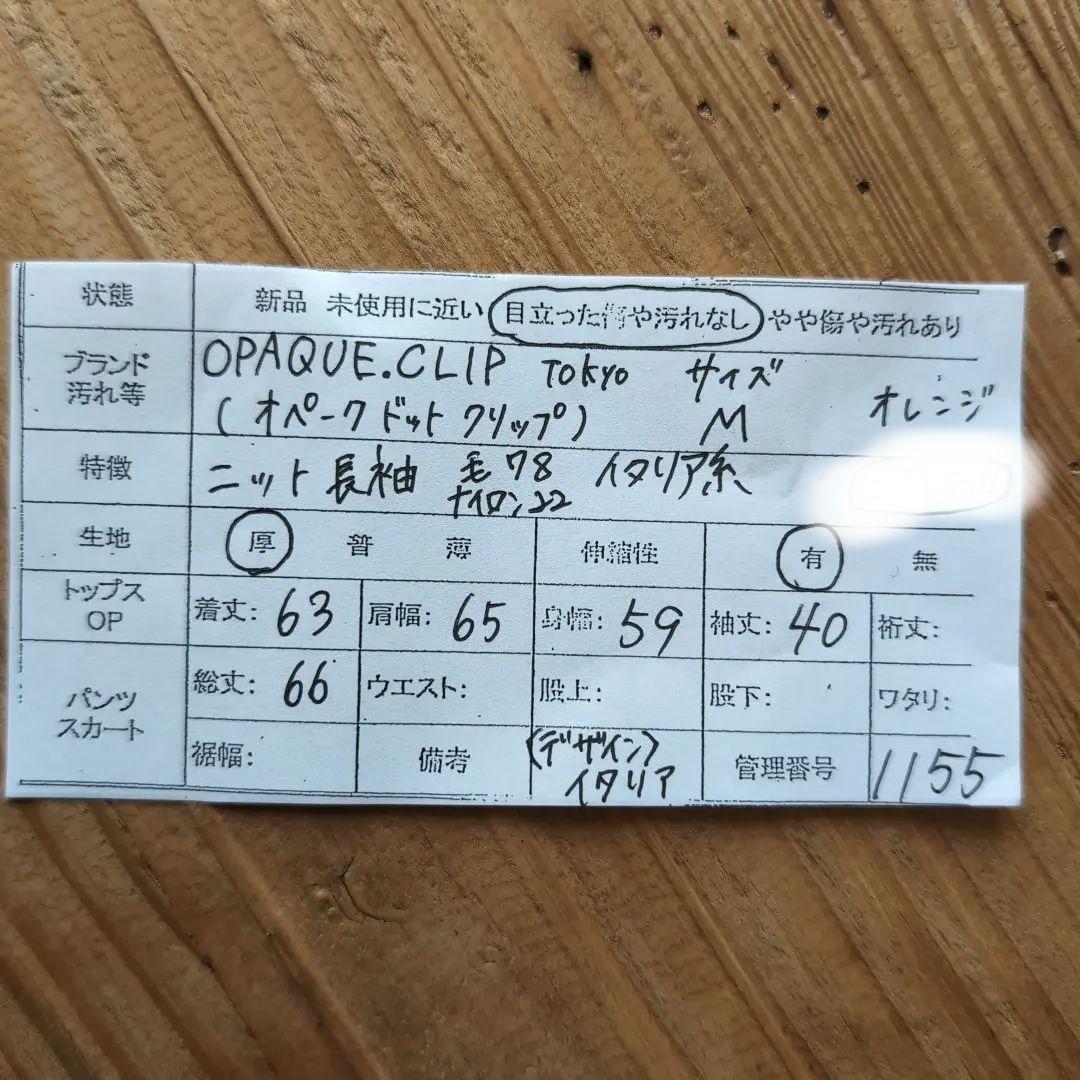 状態 新品 未使用に近い 目立った傷や汚れなし やや傷や汚れあり
ブランド 汚れ等 OPAQUE.CLIP TOKYO サイズ
(オペークドットクリップ) M オレンジ
特徴 ニット 長袖 毛78 イタリア糸
ナイロン22
生地 厚 普 薄 伸縮性 有 無
トップス OP 着丈: 63 肩幅: 65 身幅: 59 袖丈: 40 裄丈:
パンツ スカート 総丈: 66 ウエスト: 股上: 股下: ワタリ:
裾幅: 備考 (デザイン) イタリア 管理番号 1155